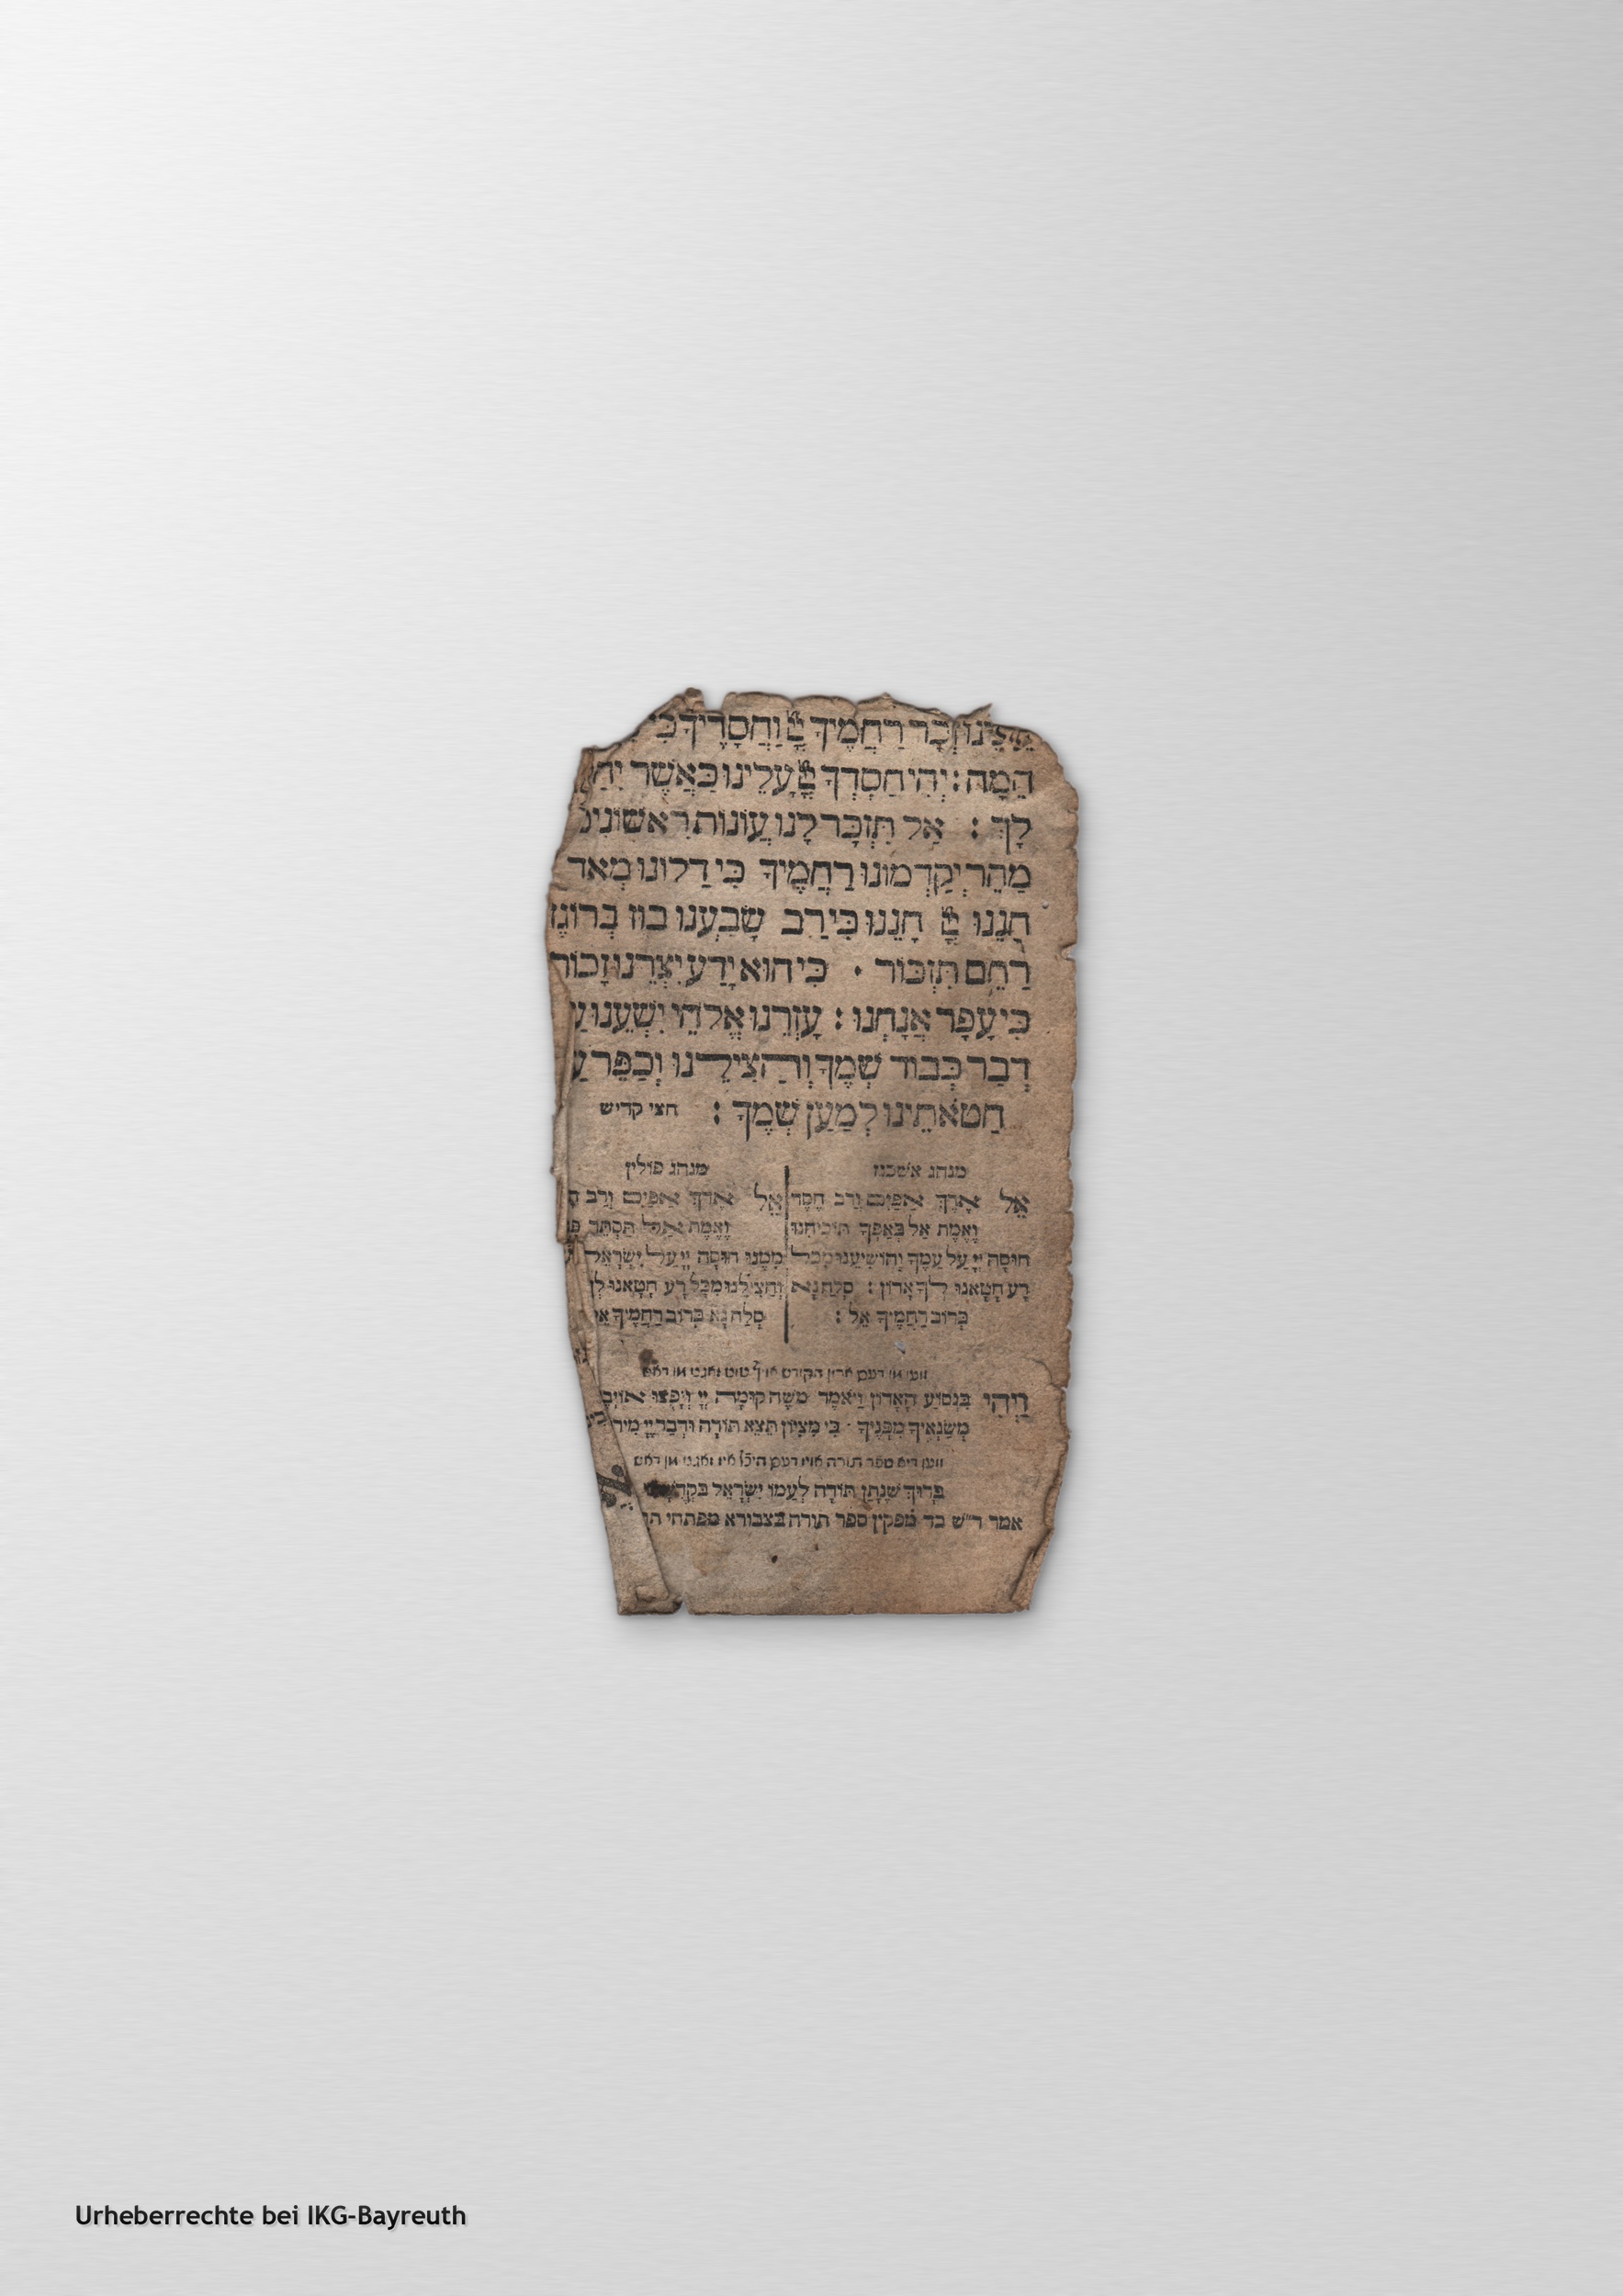 וּזְכָר רַחֲמֶיךָ יְיָ וַחֲסָדֶיךָ כִּי
הֵמָּה : יְהִי חַסְדְּךָ יְיָ עָלֵינוּ כַּאֲשֶׁר
לָךְ : אַל תִּזְכָּר לָנוּ עֲוֹנוֹת רִאשׁוֹנִים
מַהֵר יְקַדְּמוּנוּ רַחֲמֶיךָ כִּי דַלּוֹנוּ מְאֹד
חָנֵּנוּ יְיָ חָנֵּנוּ כִּי רַב שָׂבַעְנוּ בוּז בְּרוֹגֶז
רַחֵם תִּזְכּוֹר · כִּי הוּא יָדַע יִצְרֵנוּ זָכוּר
כִּי עָפָר אֲנָחְנוּ : עָזְרֵנוּ אֱלֹהֵי יִשְׁעֵנוּ עַ
דְּבַר כְּבוֹד שְׁמֶךָ וְהַצִּילֵנוּ וְכַפֵּר עַ
חַטֹּאתֵינוּ לְמַעַן שְׁמֶךָ : חצי קדיש
מנהג אשכנז
אֵל אֶרֶךְ אַפַּיִם וְרַב חֶסֶד
וֶאֱמֶת אַל בְּאַפְּךָ תּוֹכִיחֵנוּ
חוּסָה יְיָ עַל עַמֶּךָ וְהוֹשִׁיעֵנוּ מִכָּל
רָע חָטָאנוּ לְךָ אָדוֹן : סְלַח נָא
בְּרוֹב רַחֲמֶיךָ אֵל :
מנהג פולין
אֵל אֶרֶךְ אַפַּיִם וְרַב
וֶאֱמֶת אַל תַּסְתֵּר
מִמֶּנּוּ חוּסָה יְיָ עַל יִשְׂרָאֵל
וְהַצִּילֵנוּ מִכָּל רָע חָטָאנוּ
סְלַח נָא בְּרוֹב רַחֲמֶיךָ אֵ
ווען מן דעם ארון הקודש אויף טוט זאגט מן דאש
וַיְהִי בִּנְסוֹעַ הָאָרוֹן וַיֹּאמֶר מֹשֶׁה קוּמָה יְיָ וְיָפֻצוּ אוֹיְבֶ
מְשַׂנְאֶיךָ מִפָּנֶיךָ · כִּי מִצִּיּוֹן תֵּצֵא תוֹרָה וּדְבַר יְיָ מִיר
ווען דיא ספר תורה אויז דעם היכל זאגט מן דאש
בָּרוּךְ שֶׁנָּתַן תּוֹרָה לְעַמּוֹ יִשְׂרָאֵל
אמר ר״ש כד מפקין ספר תורה בצבורא מפתחי
Urheberrechte bei IKG-Bayreuth